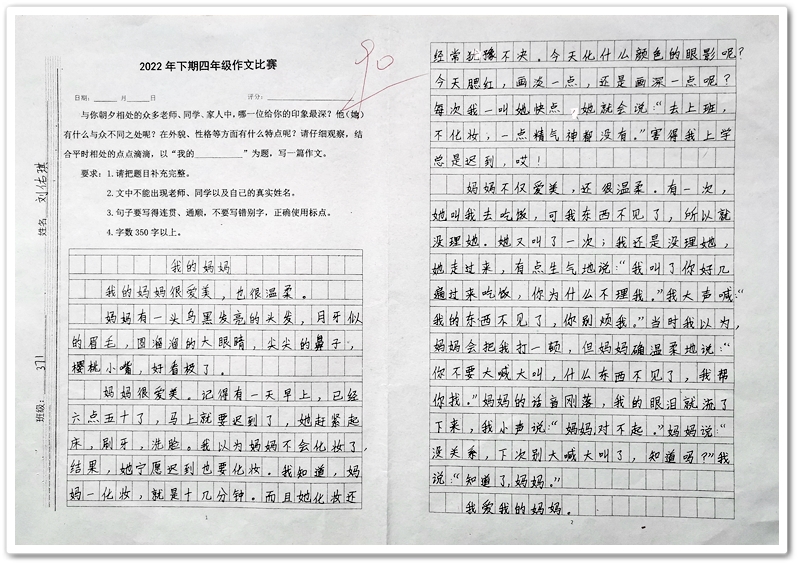 2022年下期四年级作文比赛
90
日期：______月______日 评分：______
与你朝夕相处的众多老师、同学、家人中，哪一位给你的印象最深？他（她）
有什么与众不同之处呢？在外貌、性格等方面有什么特点呢？请仔细观察，结
合平时相处的点点滴滴，以“我的__________”为题，写一篇作文。
要求：1.请把题目补充完整。
2.文中不能出现老师、同学以及自己的真实姓名。
3.句子要写得连贯、通顺，不要写错别字，正确使用标点。
4.字数350字以上。
姓名 刘佑琪
班级： 371
我的妈妈
我的妈妈很爱美，也很温柔。
妈妈有一头乌黑发亮的头发，月牙似
的眉毛，圆溜溜的大眼睛，尖尖的鼻子，
樱桃小嘴，好看极了。
妈妈很爱美。记得有一天早上，已经
六点五十了，马上就要迟到了，她赶紧起
床，刷牙，洗脸。我以为妈妈不会化妆了，
结果，她宁愿迟到也要化妆。我知道，妈
妈一化妆，就是十几分钟。而且她化妆还
1
经常犹豫不决。今天化什么颜色的眼影呢？
今天腮红，画淡一点，还是画深一点呢？
每次我一叫她快点，她就会说：“去上班，
不化妆，一点精气神都没有。”害得我上学
总是迟到，哎！
妈妈不仅爱美，还很温柔。有一次，
她叫我去吃饭，可我东西不见了，所以就
没理她。她又叫了一次；我还是没理她，
她走过来，有点生气地说：“我叫了你好几
遍过来吃饭，你为什么不理我。”我大声喊：“
我的东西不见了，你别烦我。”当时我以为，
妈妈会把我打一顿，但妈妈确温柔地说：“
你不要大喊大叫，什么东西不见了，我帮
你找。”妈妈的话音刚落，我的眼泪就流了
下来，我小声说：“妈妈对不起。”妈妈说：“
没关系，下次别大喊大叫了，知道吗？”我
说：“知道了妈妈。”
我爱我的妈妈。
2